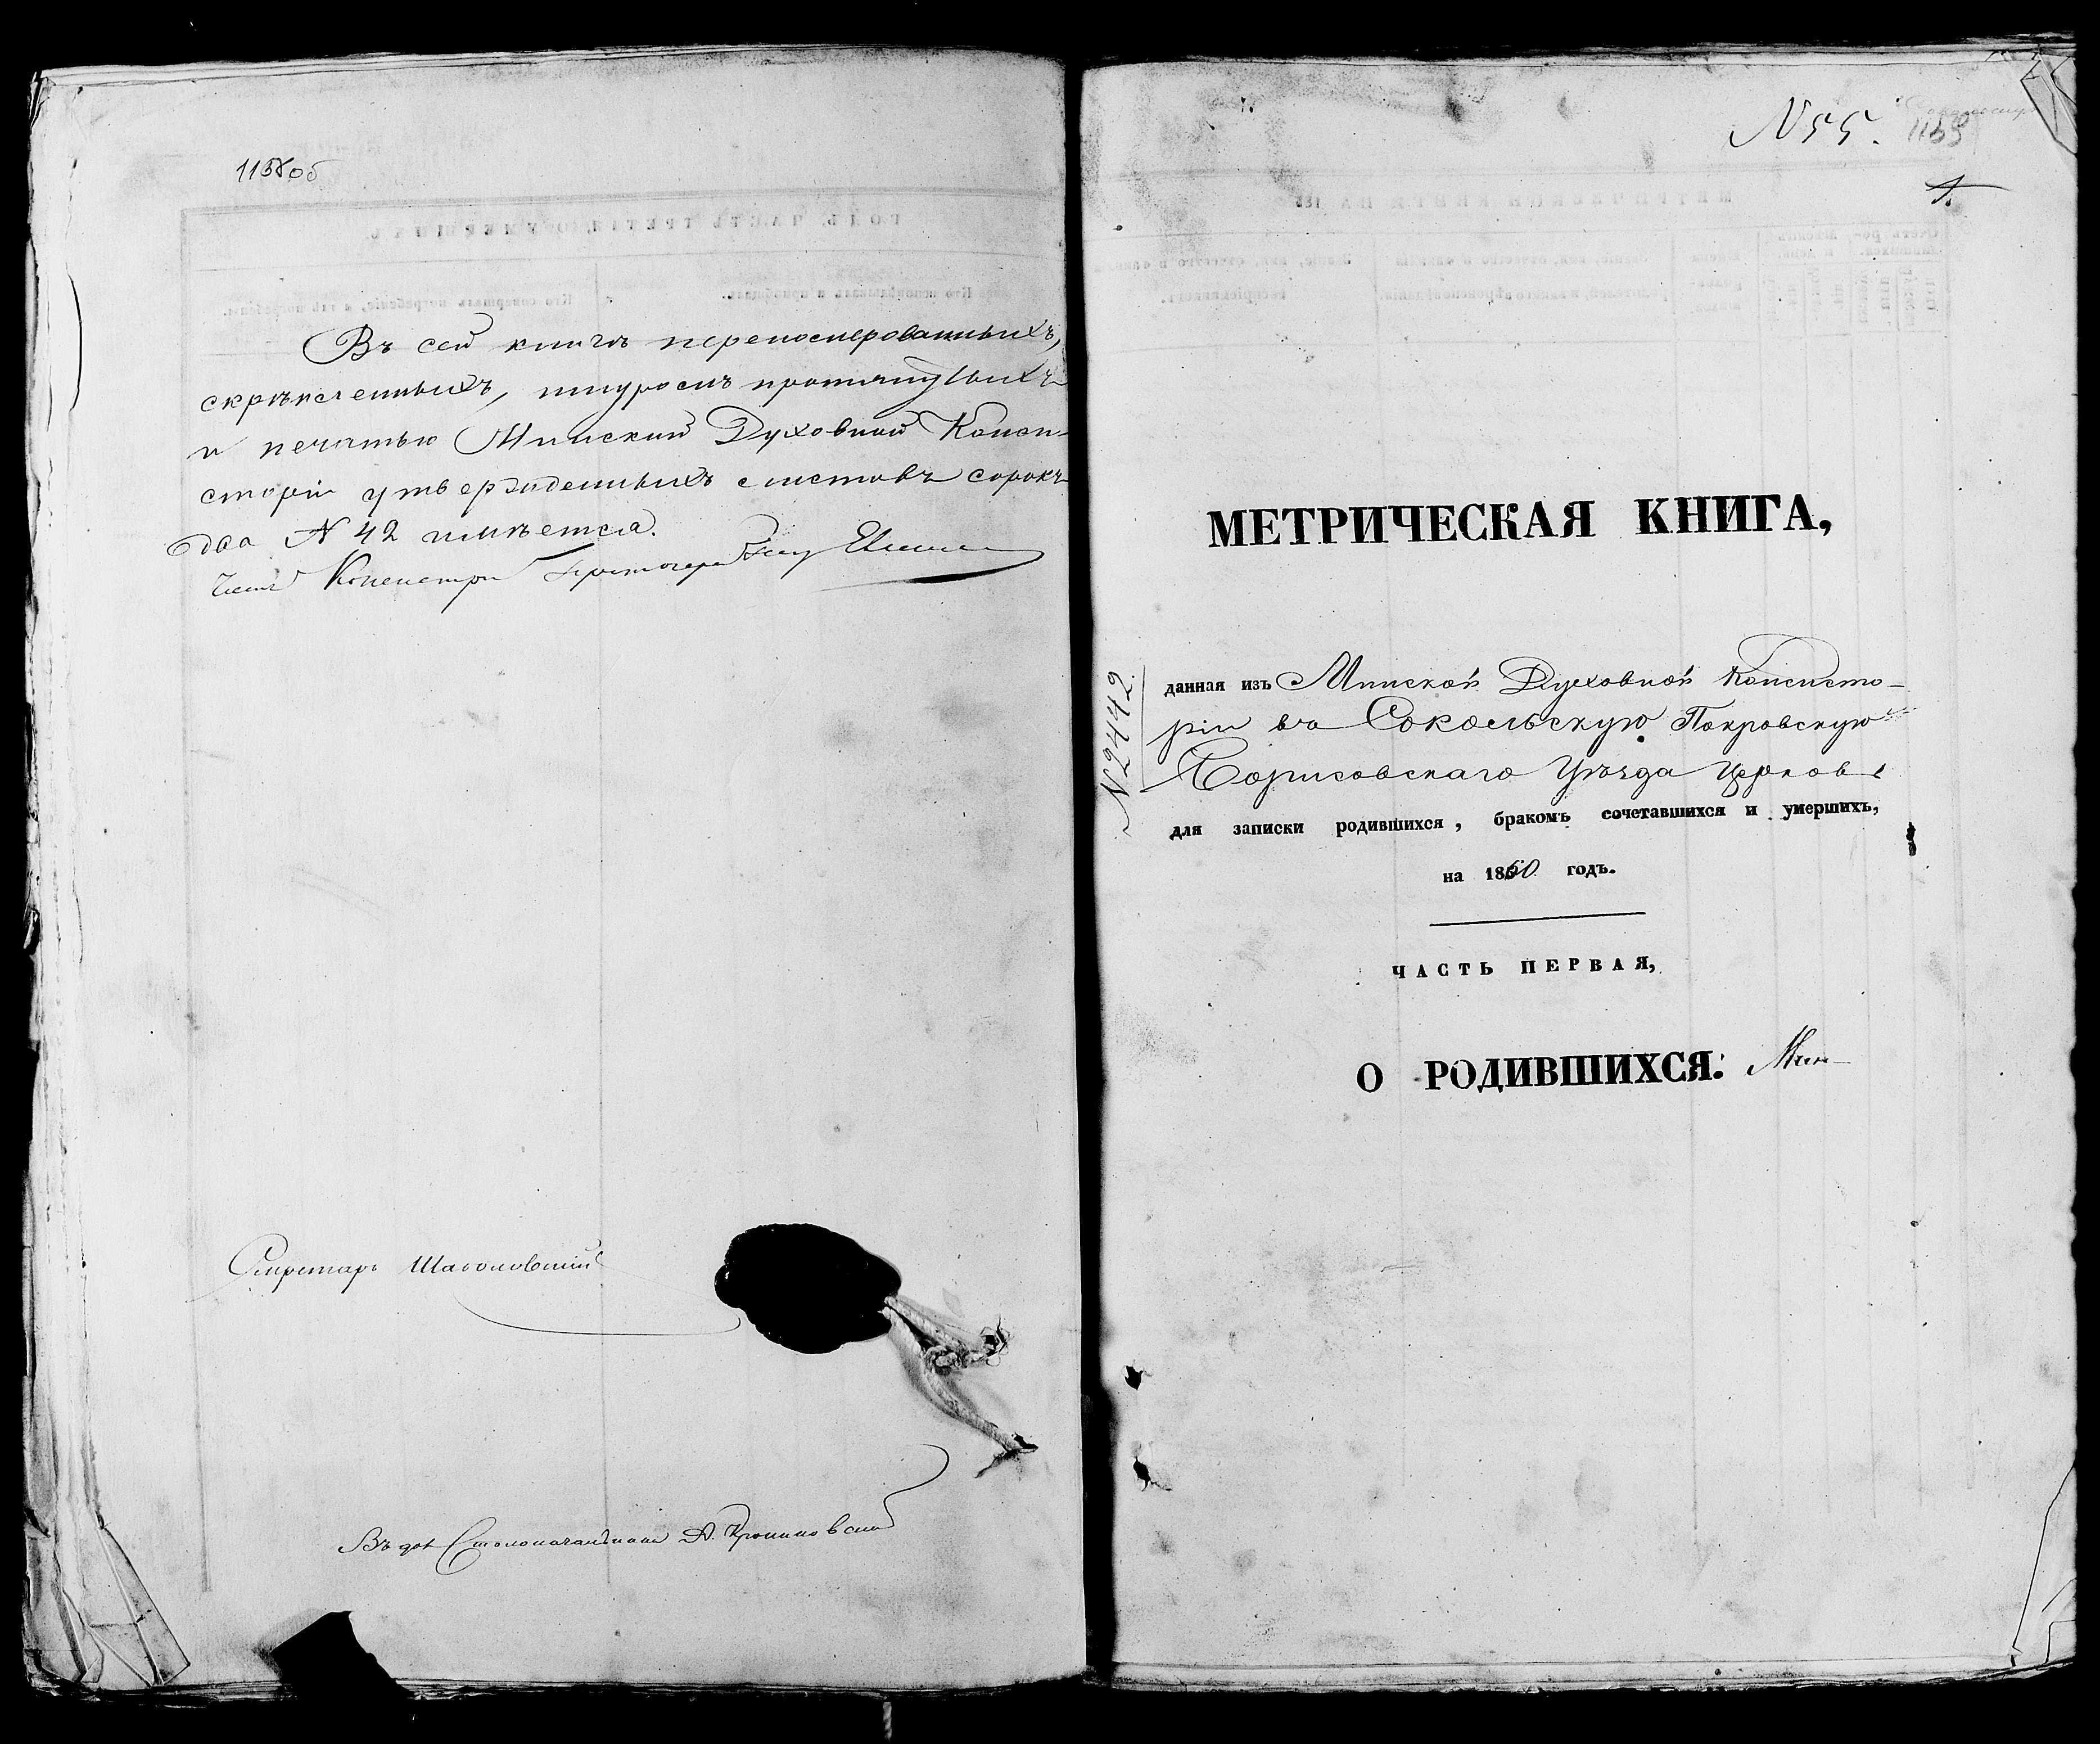 1138 об
Въ сей книгѣ перенумерованныхъ,
скрѣпленныхъ, шнуромъ протянутыхъ
и печатью Минской Духовной Конси-
сторіи утвержденныхъ листовъ сорокъ
два № 42 имѣется.
Членъ Консисторіи Протоіерей
Секретарь
Столоначальника А.
N 55. 1139
1.
МЕТРИЧЕСКАЯ КНИГА,
N 2442.
данная изъ Минской Духовной Консисто-
ріи въ Сокольскую Покровскую
Борисовскаго Уѣзда Церковь
для записки родившихся, бракомъ сочетавшихся и умершихъ,
на 1860 годъ.
ЧАСТЬ ПЕРВАЯ,
О РОДИВШИХСЯ. Мин-